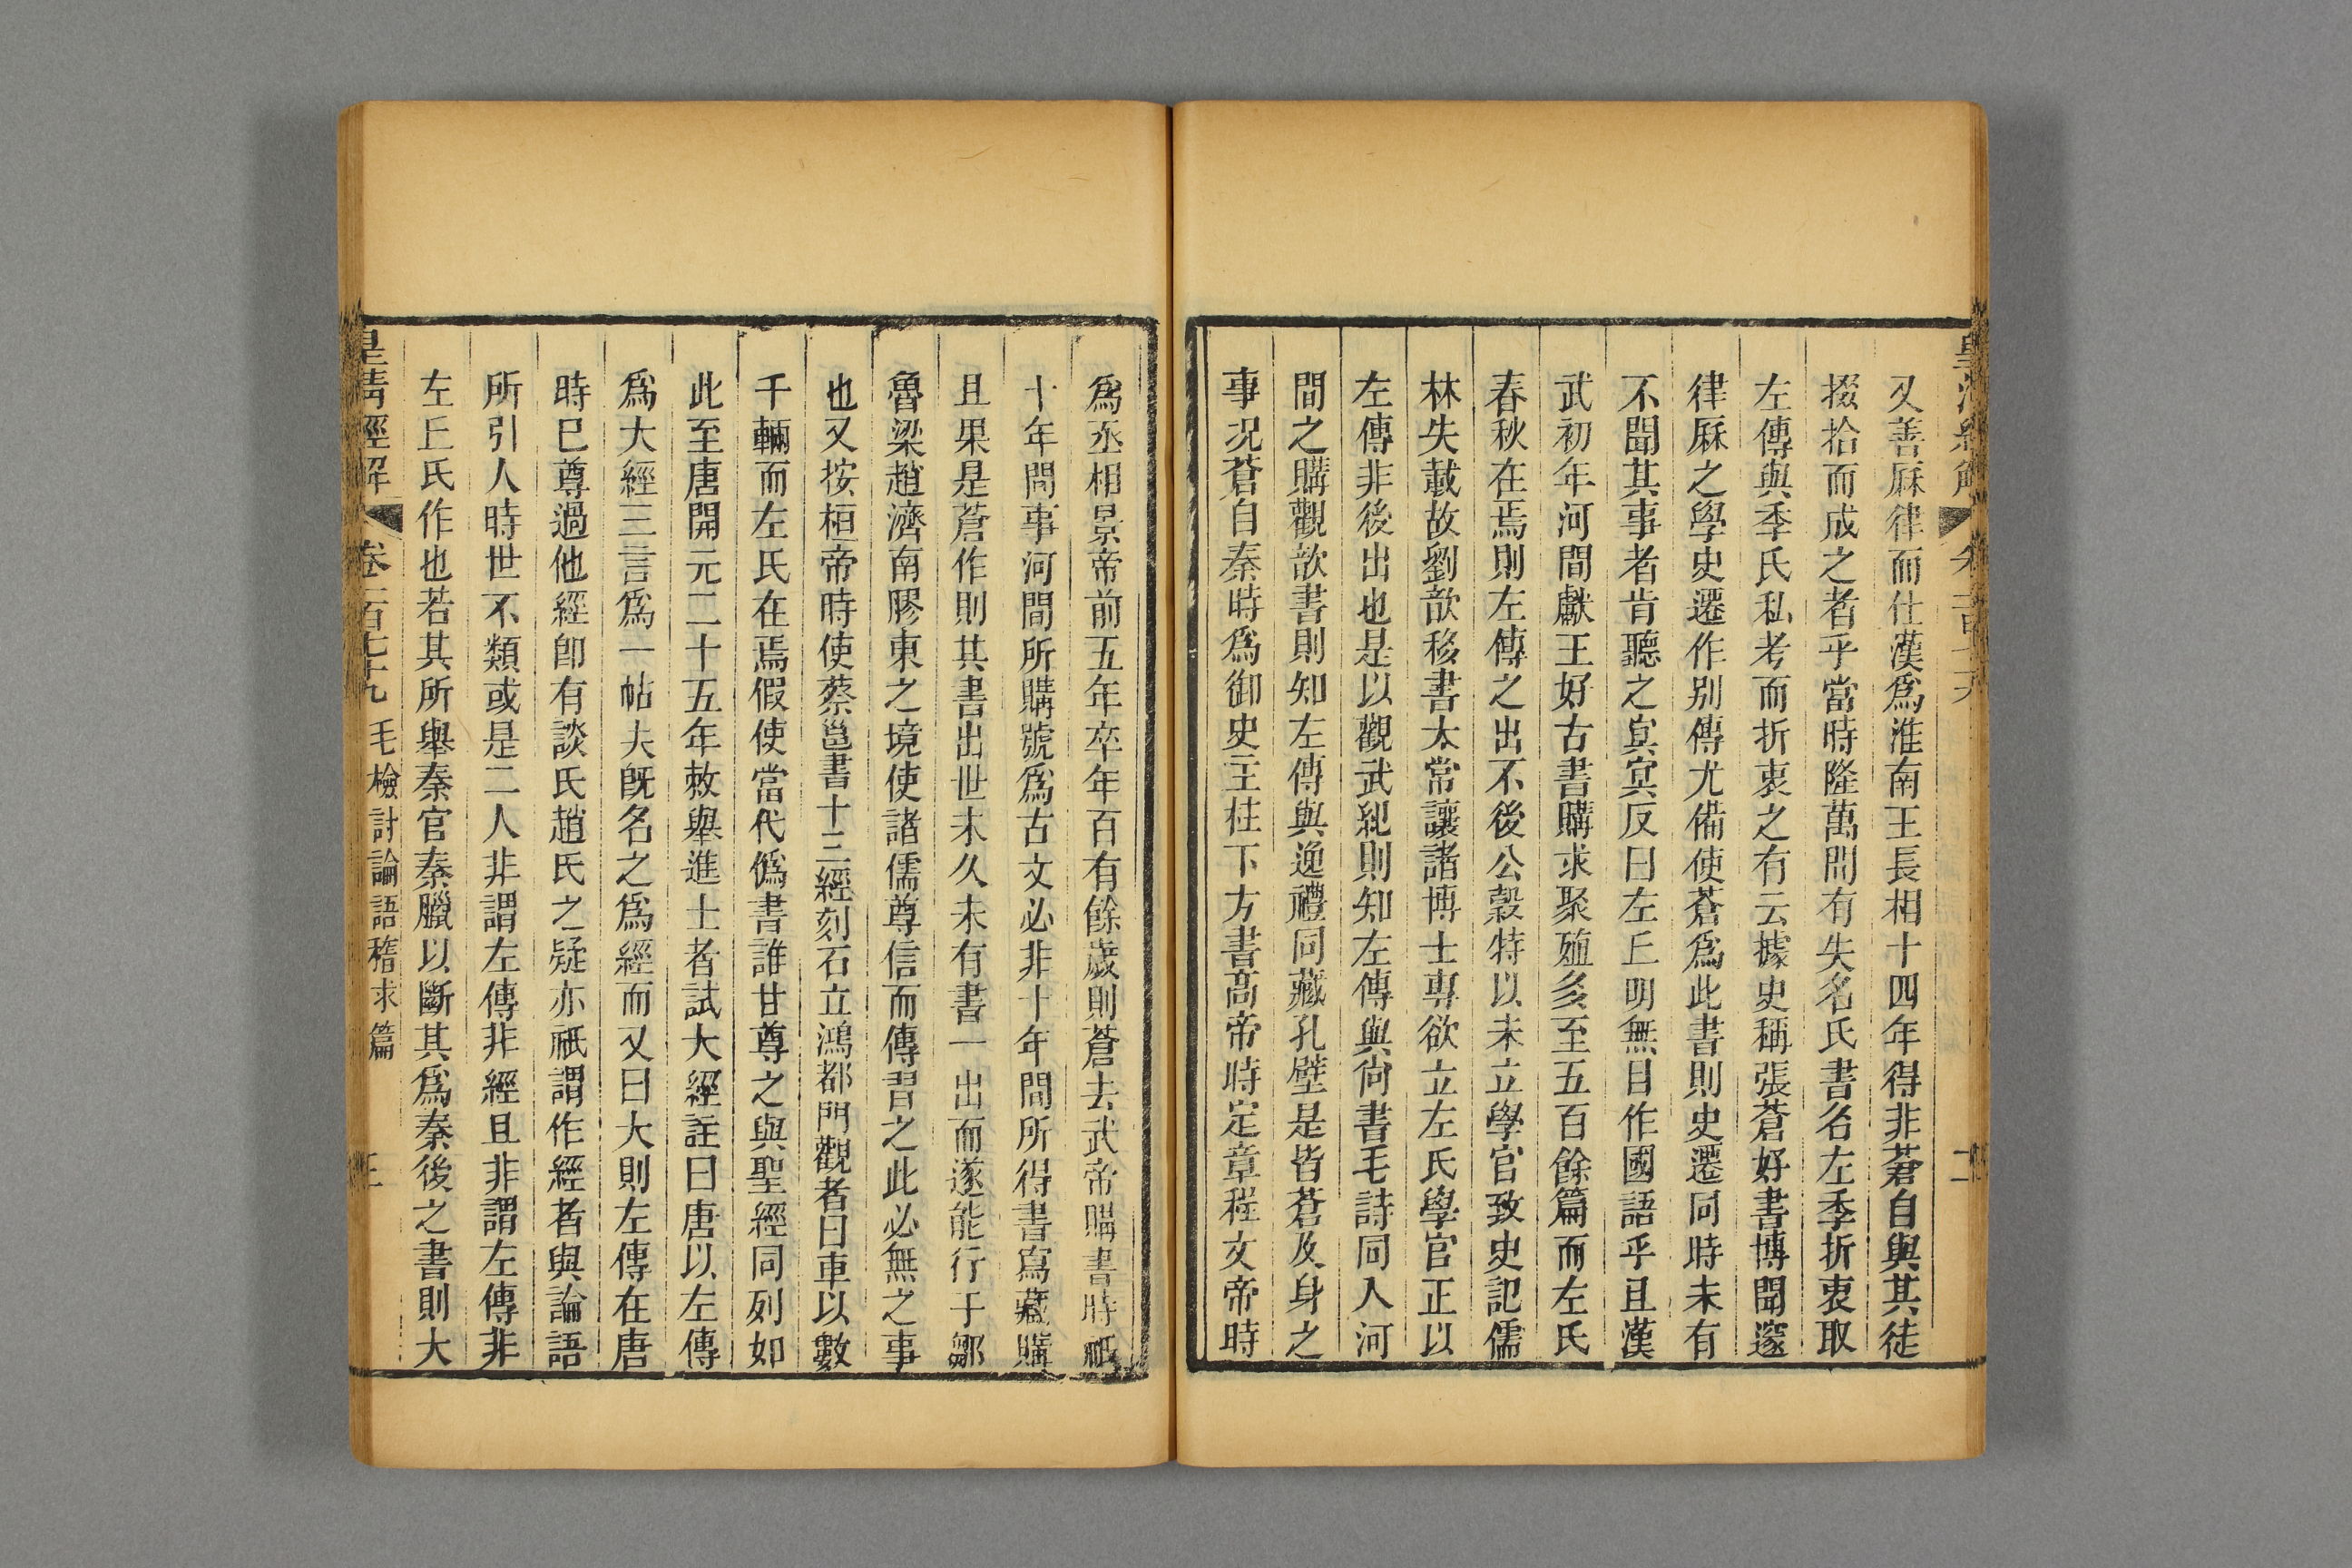 又善厤律而仕漢爲淮南王長相十四年得非蒼自與其徒
掇拾而成之者乎當時隆萬間有失名氏書名左季折衷取
左傳與季氏私考而折衷之有云據史稱張蒼好書博聞邃
律厤之學史遷作别傳尤備使蒼爲此書則史遷同時未有
不聞其事者肯聽之㝠㝠反曰左丘明無目作國語乎且漢
武初年河間獻王好古書購求聚殖多至五百餘篇而左氏
春秋在焉則左傳之出不後公穀特以未立學官致史記儒
林失載故劉歆移書太常讓諸博士專欲立左氏學官正以
左傳非後出也是以觀武紀則知左傳與尙書毛詩同入河
間之購觀歆書則知左傳與逸禮同藏孔壁是皆蒼及身之
事况蒼自秦時爲御史主柱下方書高帝時定章程文帝時
爲丞相景帝前五年卒年百有餘歲則蒼去武帝購書時祇
十年間事河間所購號爲古文必非十年間所得書寫藏購
且果是蒼作則其書出世未久未有書一出而遂能行于鄒
魯梁趙濟南膠東之境使諸儒尊信而傳習之此必無之事
也又按桓帝時使蔡邕書十三經刻石立鴻都門觀者曰車以數
千輛而左氏在焉假使當代僞書誰甘尊之與聖經同列如
此至唐開元二十五年敕舉進士者試大經註曰唐以左傳
爲大經三言爲一帖夫旣名之爲經而又曰大則左傳在唐
時已尊過他經卽有談氏趙氏之疑亦祇謂作經者與論語
所引人時世不類或是二人非謂左傳非經且非謂左傳非
左丘氏作也若其所舉秦官秦臘以斷其爲秦後之書則大
皇清經解 卷一百七十九 毛檢討論語稽求篇 三